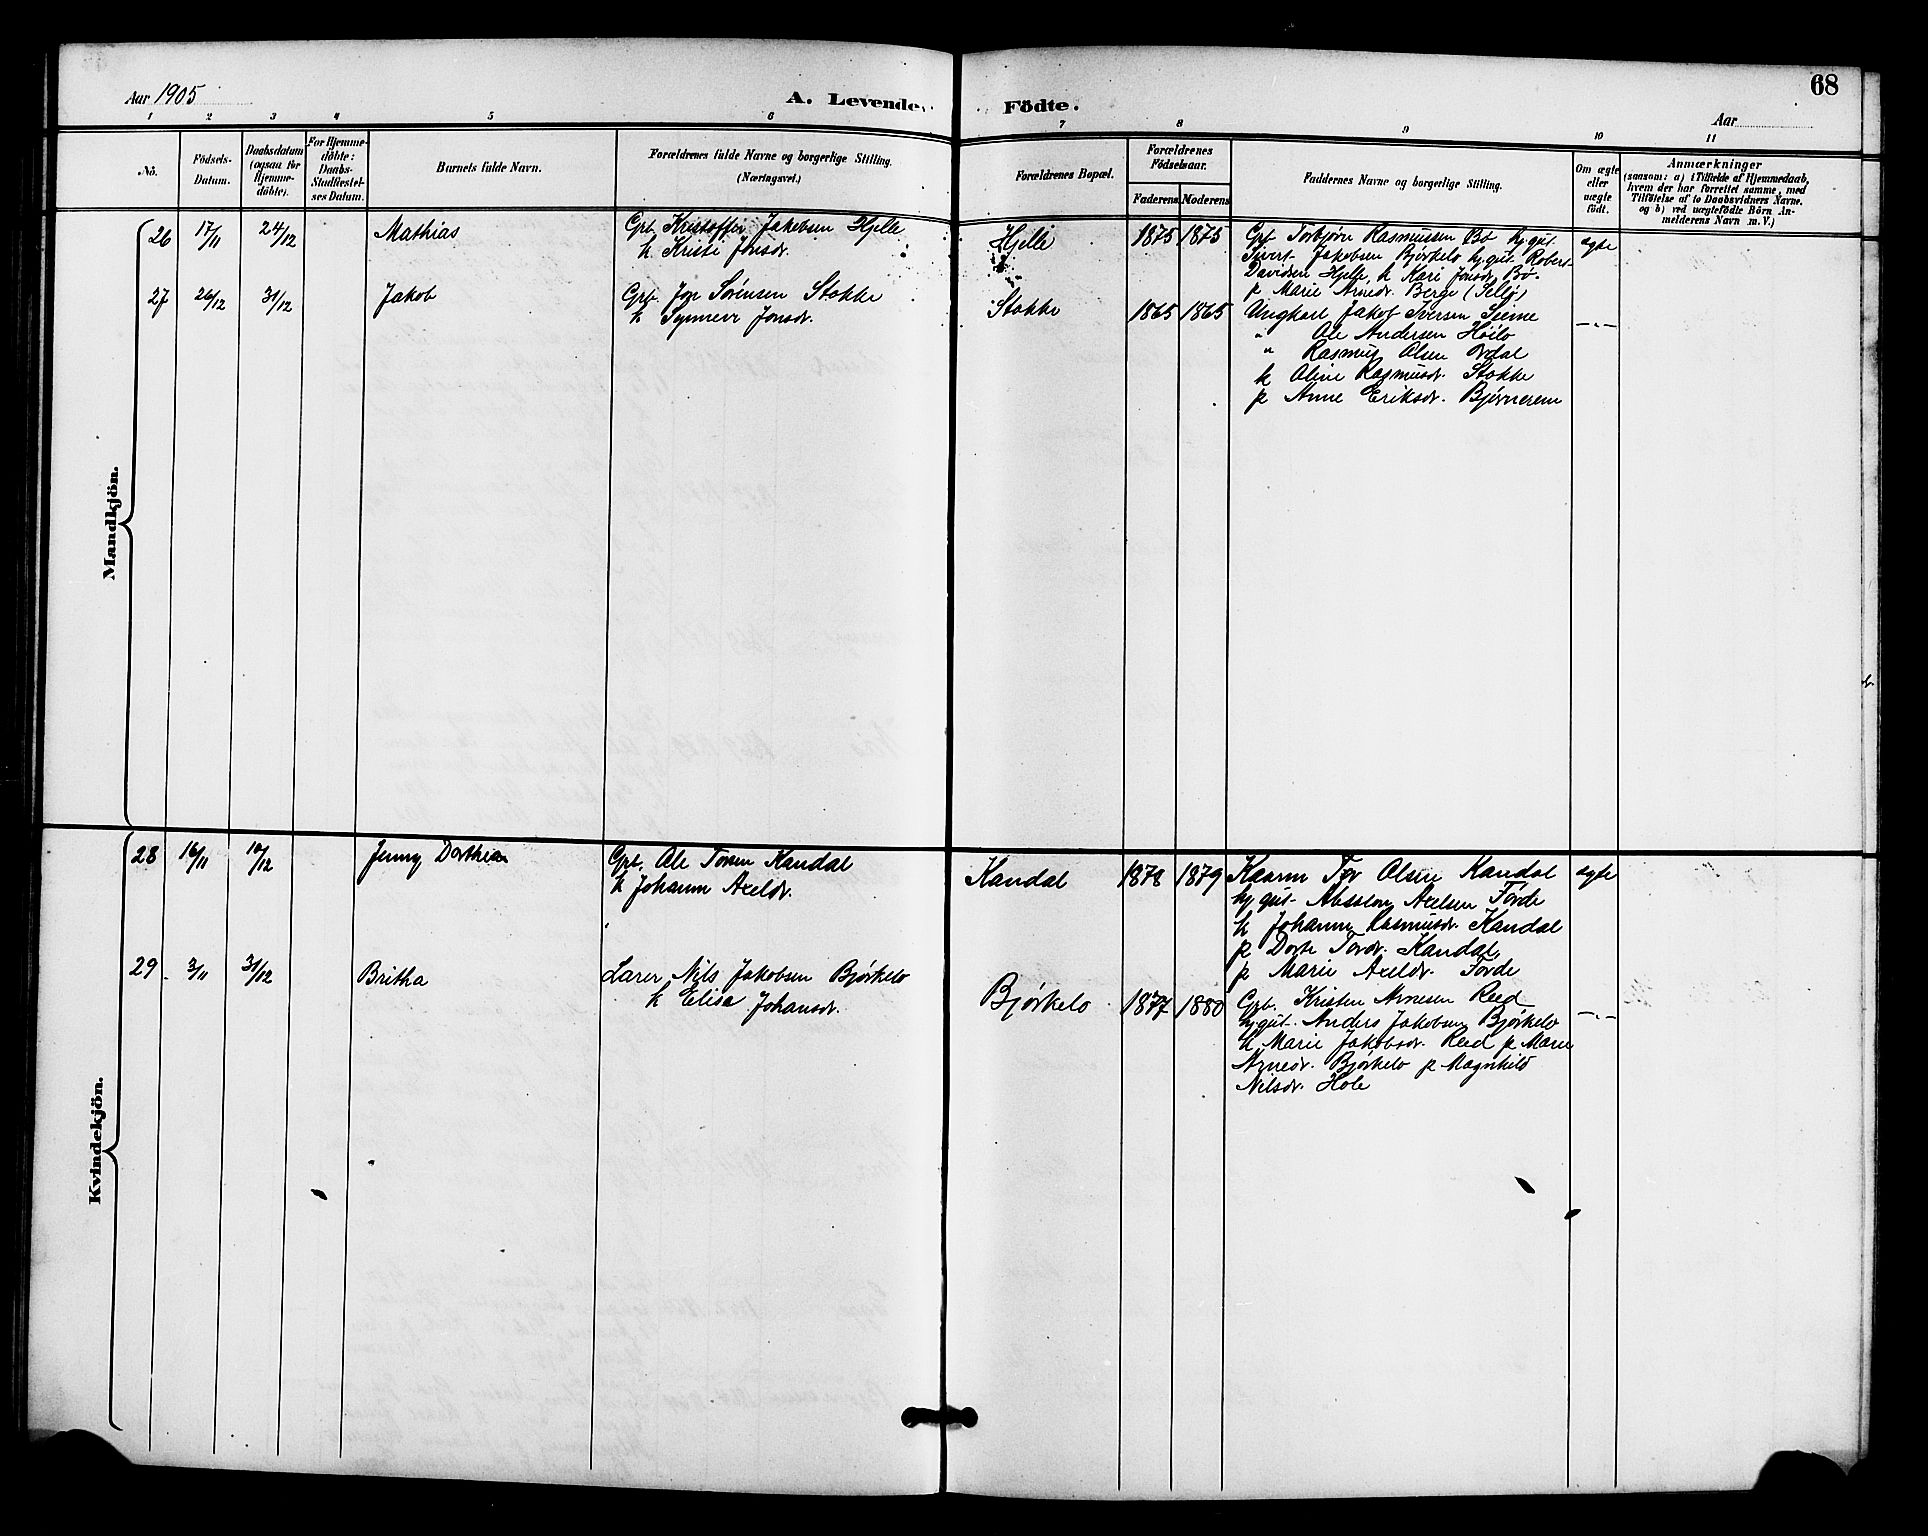 68
Aar 1905
A. Levende
Födte.
Aar
1 2 3 4 5 6 7 8 9 10 11
No.
Födsels-
Datum.
Daabsdatum
(ogsaa for
Hjemme-
döbte).
For Hjemme-
döbte:
Daabs-
Stadfæstel-
ses Datum.
Barnets fulde Navn.
Forældrenes fulde Navne og borgerlige Stilling.
(Næringsvei.)
Forældrenes Bopæl.
Forældrenes
Födselsaar.
Faderens Moderens
Faddernes Navne og borgerlige Stilling.
Om ægte
eller
uægte
födt.
Anmærkninger
(saasom: a) i Tilfælde af Hjemmedaab,
hvem der har forrettet samme, med
Tilföielse af to Daabsvidners Navne,
og b) ved uægtefödte Börn An-
melderens Navn m. V.)
Mandkjön.
26 17/11 24/12 Mathias
Gpb. Kristoffer Jakobsen Hjelle
k. Kristi Jonsdr.
Hjelle 1875 1875
Gpb. Torbjørn Rasmussen Bø hj.gut.
Sivert Jakobsen Bjørkelo hj.gut. Robert
Davidsen Hjelle k Kari Jonsdr. Bø.
p Marie Arnedr. Berge (Seljø)
ægte
27 26/12 31/12 Jakob
Gpb. Joh Sørensen Stokke
k. Synneve Jonsdr.
Stokke 1865 1865
Ungkarl Jakob Iversen Seime
" Ole Andersen Høilo
" Rasmus Olsen Ordal
k Oline Rasmusdr. Stokke
p Anne Eriksdr. Bjørnereim
— " —
Kvindekjön.
28 16/11 10/12 Jenny Dorthea
Gpb. Ole Torsen Kandal
k Johanne Axeldr.
Kandal 1878 1879
Kaarm Tor Olsen Kandal
hj.gut. Absalon Axelsen Førde
k Johanne Rasmusdr. Kandal
p Dorte Torsdr. Kandal,
p Marie Axeldr. Førde
ægte
29 3/11 31/12 Britha
Lærer Nils Jakobsen Bjørkelo
k Elisa Johansdr.
Bjørkelo 1877 1880
Gpb. Kristen Arnesen Reed
hj.gut. Anders Jakobsen Bjørkelo
k Marie Jakobsdr. Reed p Marie
Arnedr. Bjørkelo p Magnhild
Nilsdr. Hole
— " —